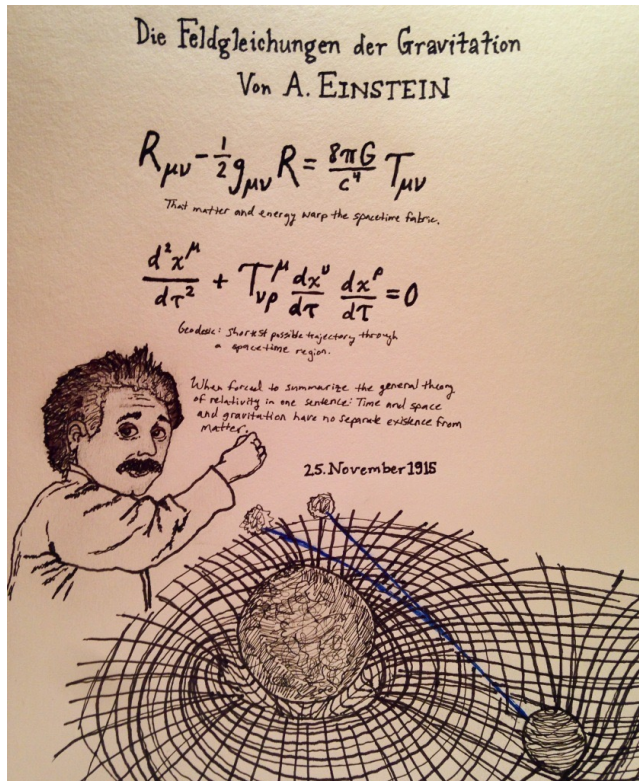 Die Feldgleichungen der Gravitation
Von A. EINSTEIN
R_μν - 1/2 g_μν R = 8πG/c^4 T_μν
That matter and energy warp the spacetime fabric.
d^2x^μ/dτ^2 + T^μ_νρ dx^ν/dτ dx^ρ/dτ = 0
Geodesic: Shortest possible trajectory through
a spacetime region.
When forced to summarize the general theory
of relativity in one sentence: Time and space
and gravitation have no separate existence from
matter.
25. November 1915